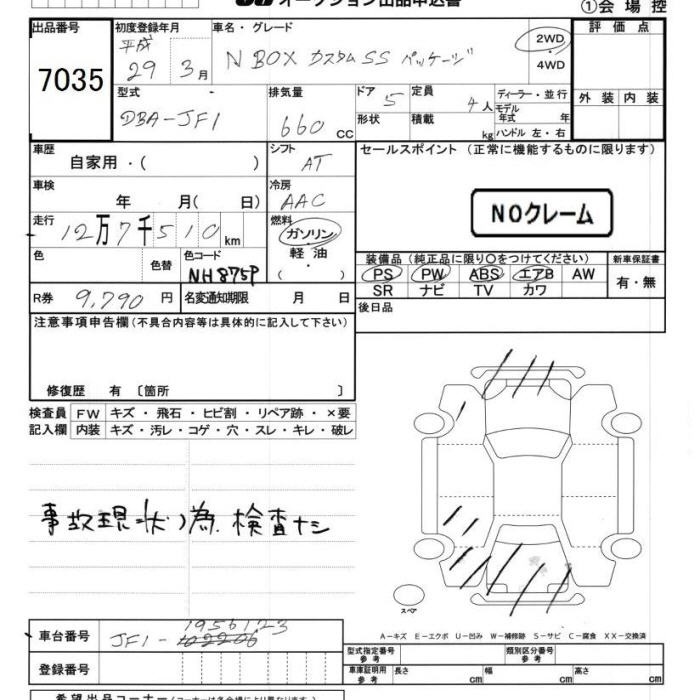 オークション出品申込書
①会場控
出品番号
7035
初度登録年月
平成
29 3月
車名・グレード
N BOX カスタムSS パッケージ
2WD
・
4WD
評価点
外装 内装
型式
DBA-JF1
排気量
660 CC
ドア 5
形状
定員 4人
積載 kg
ディーラー・並行
モデル年式 年
ハンドル 左・右
車歴
自家用・( )
シフト
AT
セールスポイント (正常に機能するものに限ります)
NOクレーム
車検
年 月( 日)
冷房
AAC
走行
12万7千510km
燃料
ガソリン
・
軽油
( ・ )
色
色替
色コード
NH875P
装備品 (純正品に限り○をつけてください)
PS PW ABS エアB AW
SR ナビ TV カワ
新車保証書
有・無
R券 9,790 円
名変通知期限 月 日
後日品
注意事項申告欄 (不具合内容等は具体的に記入して下さい)
修復歴 有 〔箇所 〕
検査員
記入欄
FW キズ・飛石・ヒビ割・リペア跡・×要
内装 キズ・汚レ・コゲ・穴・スレ・キレ・破レ
事故現状ノ為 検査ナシ
スペア
A−キズ E−エクボ U−凹み W−補修跡 S−サビ C−腐食 XX−交換済
車台番号
1956123
JF1-102206
登録番号
型式指定番号
参考
類別区分番号
参考
車庫証明用
参考
長さ cm
幅 cm
高さ cm
希望出品コーナー (コーナーは各会場により異なります)